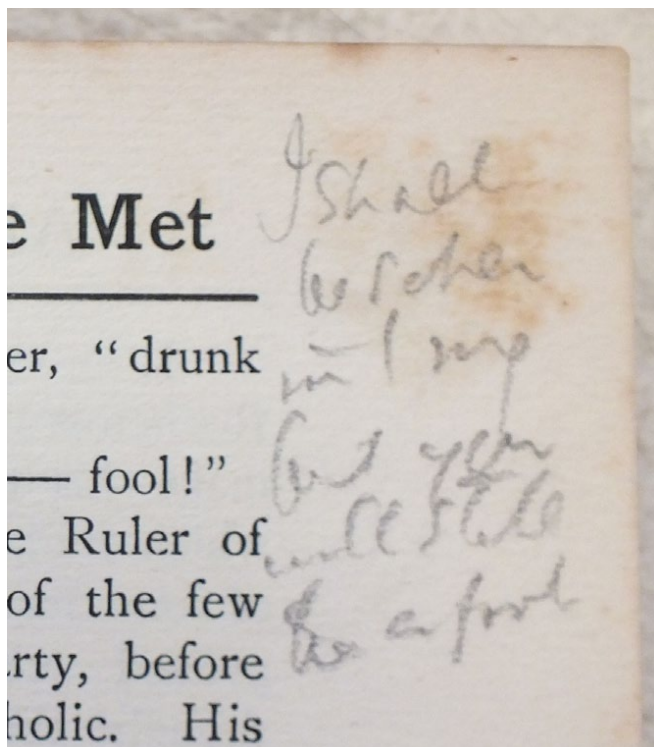 e Met
er, “drunk
— fool!”
e Ruler of
of the few
rty, before
holic. His
I shall
be sober
in
but you
will still
be a fool